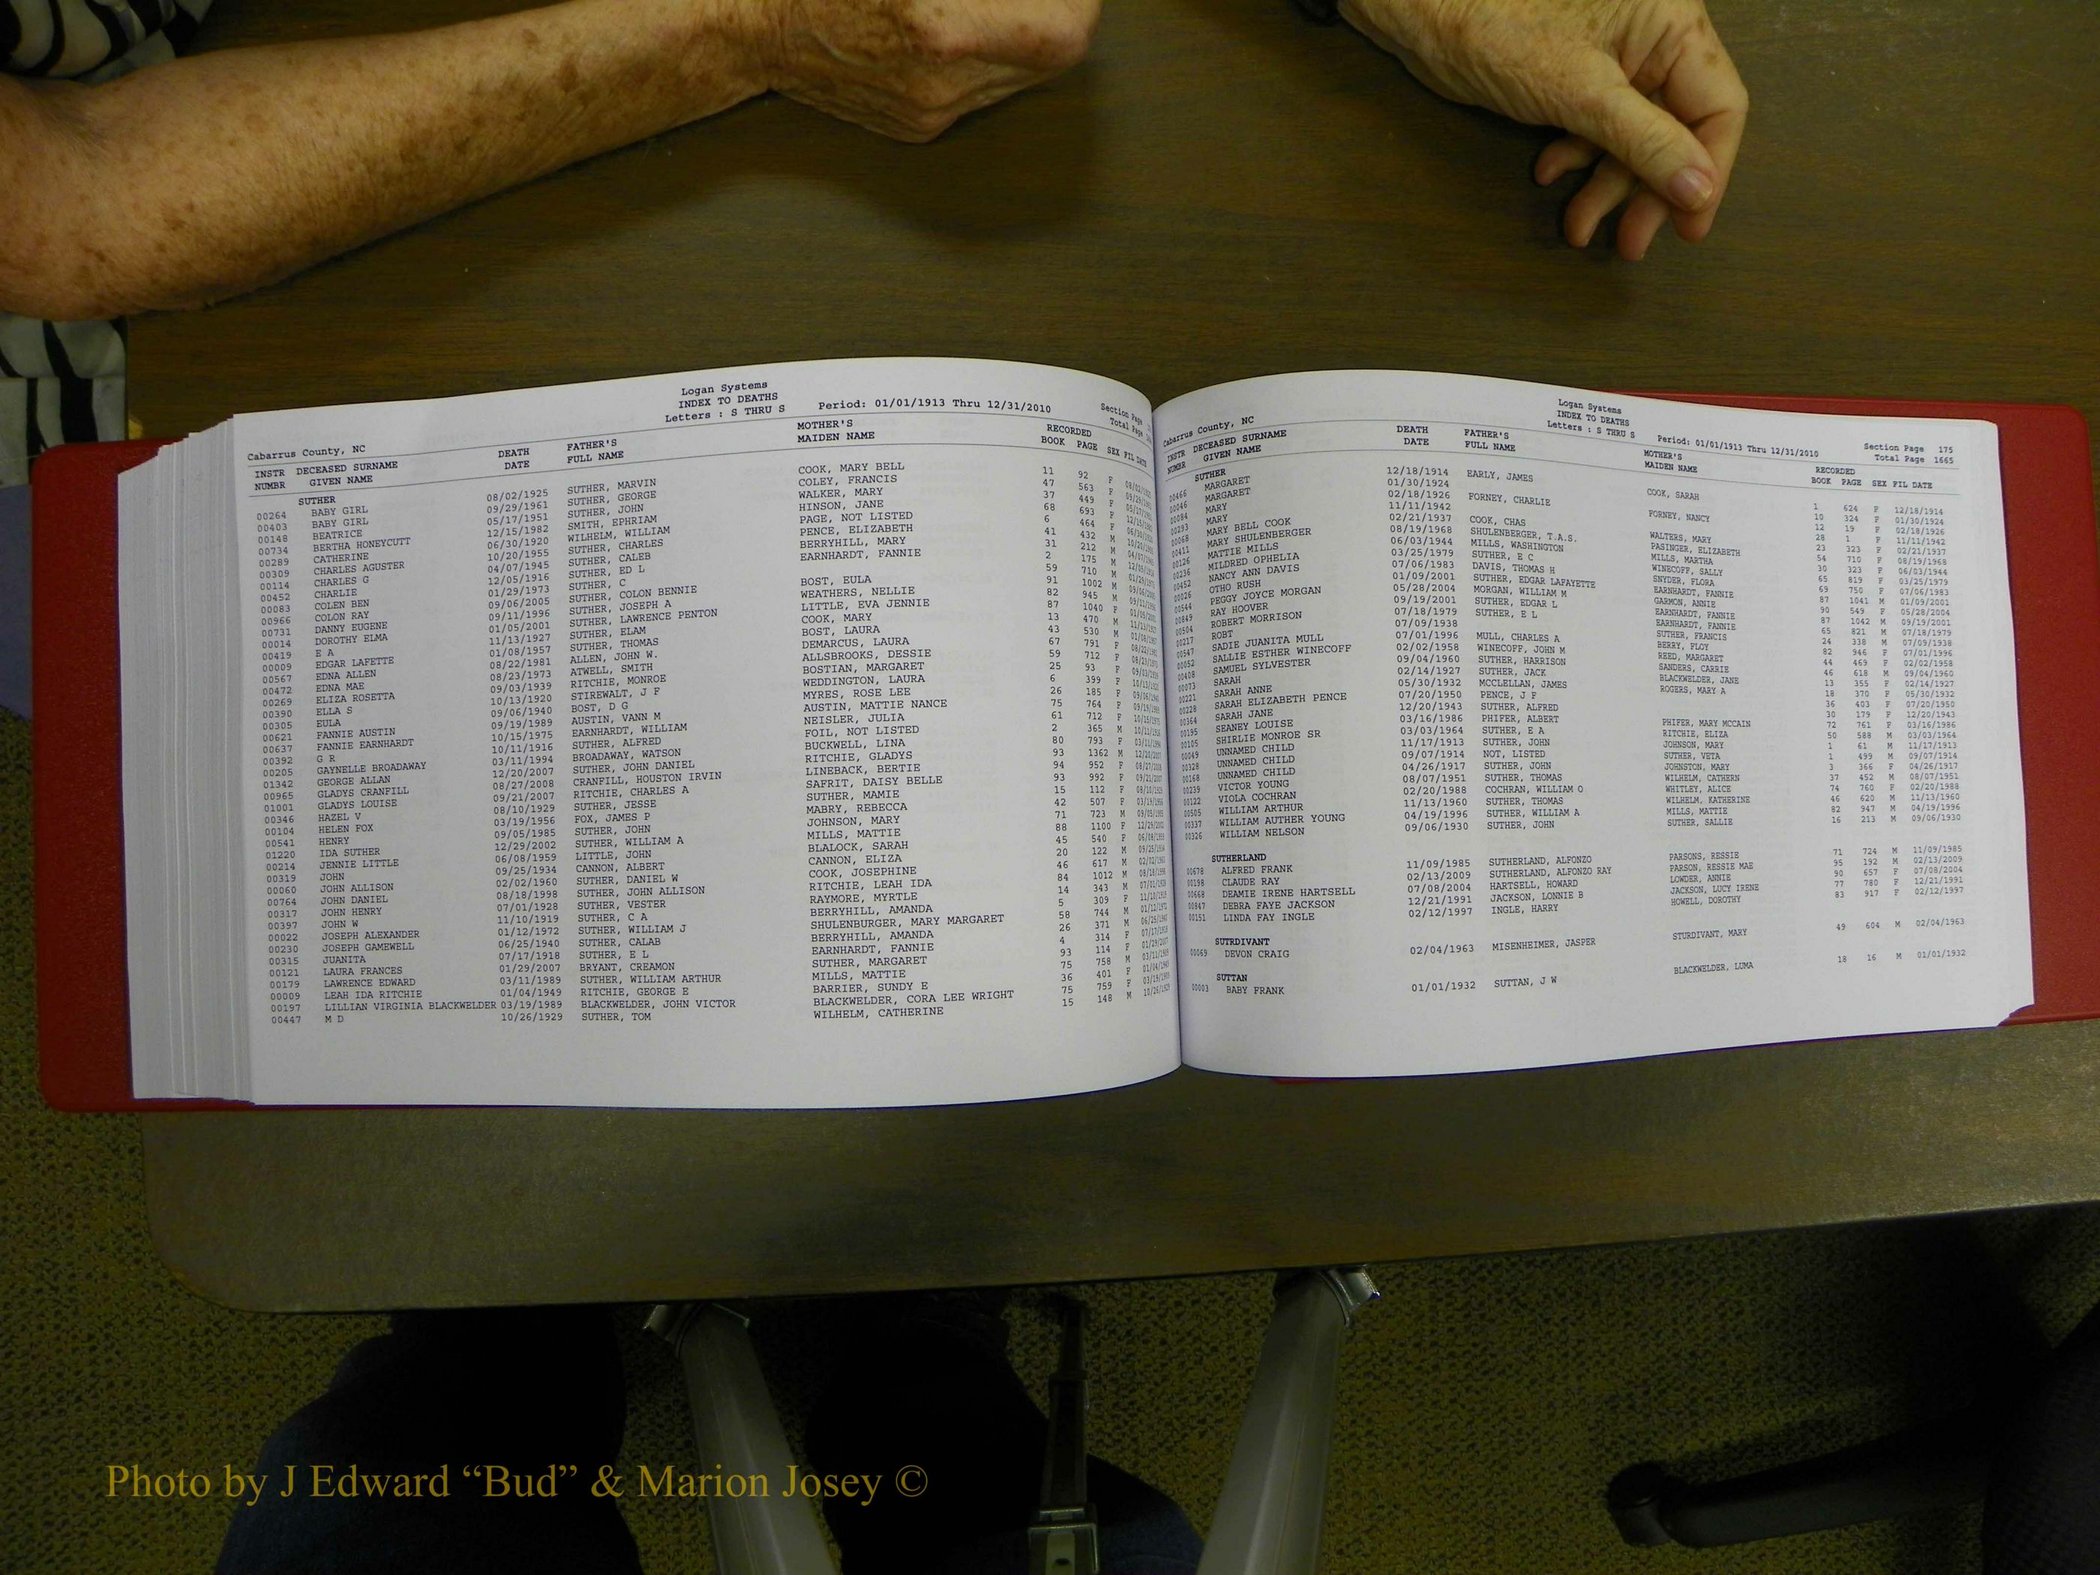 Logan Systems
INDEX TO DEATHS
Letters : S THRU S Period: 01/01/1913 Thru 12/31/2010
Section Page
Total Page
Cabarrus County, NC
INSTR DECEASED SURNAME DEATH FATHER'S MOTHER'S RECORDED
NUMBR GIVEN NAME DATE FULL NAME MAIDEN NAME BOOK PAGE SEX FIL DATE
SUTHER
00264 BABY GIRL 08/02/1925 SUTHER, MARVIN COOK, MARY BELL 11 92 F
00403 BABY GIRL 09/29/1961 SUTHER, GEORGE COLEY, FRANCIS 47 563 F
00148 BEATRICE 05/17/1951 SUTHER, JOHN WALKER, MARY 37 449 F
00734 BERTHA HONEYCUTT 12/15/1982 SMITH, EPHRIAM HINSON, JANE 68 693 F
00289 CATHERINE 06/30/1920 WILHELM, WILLIAM PAGE, NOT LISTED 6 464 F
00309 CHARLES AGUSTER 10/20/1955 SUTHER, CHARLES PENCE, ELIZABETH 41 432 M
00114 CHARLES G 04/07/1945 SUTHER, CALEB BERRYHILL, MARY 31 212 M
00452 CHARLIE 12/05/1916 SUTHER, ED L EARNHARDT, FANNIE 2 175 M
00083 COLEN BEN 01/29/1973 SUTHER, C 59 710 M
00966 COLON RAY 09/06/2005 SUTHER, COLON BENNIE BOST, EULA 91 1002 M
00731 DANNY EUGENE 09/11/1996 SUTHER, JOSEPH A WEATHERS, NELLIE 82 945 M
00014 DOROTHY ELMA 01/05/2001 SUTHER, LAWRENCE PENTON LITTLE, EVA JENNIE 87 1040 F
00419 E A 11/13/1927 SUTHER, ELAM COOK, MARY 13 470 M
00009 EDGAR LAFETTE 01/08/1957 SUTHER, THOMAS BOST, LAURA 43 530 M
00567 EDNA ALLEN 08/22/1981 ALLEN, JOHN W. DEMARCUS, LAURA 67 791 F
00472 EDNA MAE 08/23/1973 ATWELL, SMITH ALLSBROOKS, DESSIE 59 712 F
00269 ELIZA ROSETTA 09/03/1939 RITCHIE, MONROE BOSTIAN, MARGARET 25 93 F
00390 ELLA S 10/13/1920 STIREWALT, J F WEDDINGTON, LAURA 6 399 F
00305 EULA 09/06/1940 BOST, D G MYRES, ROSE LEE 26 185 F
00621 FANNIE AUSTIN 09/19/1989 AUSTIN, VANN M AUSTIN, MATTIE NANCE 75 764 F
00637 FANNIE EARNHARDT 10/15/1975 EARNHARDT, WILLIAM NEISLER, JULIA 61 712 F
00392 G R 10/11/1916 SUTHER, ALFRED FOIL, NOT LISTED 2 365 M
00205 GAYNELLE BROADAWAY 03/11/1994 BROADAWAY, WATSON BUCKWELL, LINA 80 793 F
01342 GEORGE ALLAN 12/20/2007 SUTHER, JOHN DANIEL RITCHIE, GLADYS 93 1362 M
00965 GLADYS CRANFILL 08/27/2008 CRANFILL, HOUSTON IRVIN LINEBACK, BERTIE 94 952 F
01001 GLADYS LOUISE 09/21/2007 RITCHIE, CHARLES A SAFRIT, DAISY BELLE 93 992 F
00346 HAZEL V 08/10/1929 SUTHER, JESSE SUTHER, MAMIE 15 112 F
00104 HELEN FOX 03/19/1956 FOX, JAMES P MABRY, REBECCA 42 507 F
00541 HENRY 09/05/1985 SUTHER, JOHN JOHNSON, MARY 71 723 M
01220 IDA SUTHER 12/29/2002 SUTHER, WILLIAM A MILLS, MATTIE 88 1100 F
00214 JENNIE LITTLE 06/08/1959 LITTLE, JOHN BLALOCK, SARAH 45 540 F
00319 JOHN 09/25/1934 CANNON, ALBERT CANNON, ELIZA 20 122 M
00060 JOHN ALLISON 02/02/1960 SUTHER, DANIEL W COOK, JOSEPHINE 46 617 M
00764 JOHN DANIEL 08/18/1998 SUTHER, JOHN ALLISON RITCHIE, LEAH IDA 84 1012 M
00317 JOHN HENRY 07/01/1928 SUTHER, VESTER RAYMORE, MYRTLE 14 343 M
00397 JOHN W 11/10/1919 SUTHER, C A BERRYHILL, AMANDA 5 309
00022 JOSEPH ALEXANDER 01/12/1972 SUTHER, WILLIAM J SHULENBURGER, MARY MARGARET 58 744 M
00230 JOSEPH GAMEWELL 06/25/1940 SUTHER, CALAB BERRYHILL, AMANDA 26 371 M
00315 JUANITA 07/17/1918 SUTHER, E L EARNHARDT, FANNIE 4 314 F
00121 LAURA FRANCES 01/29/2007 BRYANT, CREAMON SUTHER, MARGARET 93 114 F
00179 LAWRENCE EDWARD 03/11/1989 SUTHER, WILLIAM ARTHUR MILLS, MATTIE 75 758 M
00009 LEAH IDA RITCHIE 01/04/1949 RITCHIE, GEORGE E BARRIER, SUNDY E 36 401 F
00197 LILLIAN VIRGINIA BLACKWELDER 03/19/1989 BLACKWELDER, JOHN VICTOR BLACKWELDER, CORA LEE WRIGHT 75 759 F
00447 M D 10/26/1929 SUTHER, TOM WILHELM, CATHERINE 15 148 M
Logan Systems
INDEX TO DEATHS
Letters : S THRU S Period: 01/01/1913 Thru 12/31/2010
Section Page 175
Total Page 1665
Cabarrus County, NC
INSTR DECEASED SURNAME DEATH FATHER'S MOTHER'S RECORDED
NUMBR GIVEN NAME DATE FULL NAME MAIDEN NAME BOOK PAGE SEX FIL DATE
SUTHER
00466 MARGARET 12/18/1914 EARLY, JAMES COOK, SARAH 1 624 F 12/18/1914
00046 MARGARET 01/30/1924 10 324 F 01/30/1924
00084 MARY 02/18/1926 FORNEY, CHARLIE FORNEY, NANCY 12 19 F 02/18/1926
00293 MARY 11/11/1942 28 1 F 11/11/1942
00068 MARY BELL COOK 02/21/1937 COOK, CHAS WALTERS, MARY 23 323 F 02/21/1937
00411 MARY SHULENBERGER 08/19/1968 SHULENBERGER, T.A.S. PASINGER, ELIZABETH 54 710 F 08/19/1968
00126 MATTIE MILLS 06/03/1944 MILLS, WASHINGTON MILLS, MARTHA 30 323 F 06/03/1944
00236 MILDRED OPHELIA 03/25/1979 SUTHER, E C WINECOFF, SALLY 65 819 F 03/25/1979
00452 NANCY ANN DAVIS 07/06/1983 DAVIS, THOMAS H SNYDER, FLORA 69 750 F 07/06/1983
00026 OTHO RUSH 01/09/2001 SUTHER, EDGAR LAFAYETTE EARNHARDT, FANNIE 87 1041 M 01/09/2001
00544 PEGGY JOYCE MORGAN 05/28/2004 MORGAN, WILLIAM M GARMON, ANNIE 90 549 F 05/28/2004
00849 RAY HOOVER 09/19/2001 SUTHER, EDGAR L EARNHARDT, FANNIE 87 1042 M 09/19/2001
00504 ROBERT MORRISON 07/18/1979 SUTHER, E L EARNHARDT, FANNIE 65 821 M 07/18/1979
00217 ROBT 07/09/1938 SUTHER, FRANCIS 24 338 M 07/09/1938
00547 SADIE JUANITA MULL 07/01/1996 MULL, CHARLES A BERRY, PLOY 82 946 F 07/01/1996
00052 SALLIE ESTHER WINECOFF 02/02/1958 WINECOFF, JOHN M REED, MARGARET 44 469 F 02/02/1958
00408 SAMUEL SYLVESTER 09/04/1960 SUTHER, HARRISON SANDERS, CARRIE 46 618 M 09/04/1960
00073 SARAH 02/14/1927 SUTHER, JACK BLACKWELDER, JANE 13 355 F 02/14/1927
00221 SARAH ANNE 05/30/1932 MCCLELLAN, JAMES ROGERS, MARY A 18 370 F 05/30/1932
00228 SARAH ELIZABETH PENCE 07/20/1950 PENCE, J F 36 403 F 07/20/1950
00364 SARAH JANE 12/20/1943 SUTHER, ALFRED 30 179 F 12/20/1943
00195 SEANEY LOUISE 03/16/1986 PHIFER, ALBERT PHIFER, MARY MCCAIN 72 761 F 03/16/1986
00105 SHIRLIE MONROE SR 03/03/1964 SUTHER, E A RITCHIE, ELIZA 50 588 M 03/03/1964
00049 UNNAMED CHILD 11/17/1913 SUTHER, JOHN JOHNSON, MARY 1 61 M 11/17/1913
00328 UNNAMED CHILD 09/07/1914 NOT, LISTED SUTHER, VETA 1 499 M 09/07/1914
00168 UNNAMED CHILD 04/26/1917 SUTHER, JOHN JOHNSTON, MARY 3 366 F 04/26/1917
00239 VICTOR YOUNG 08/07/1951 SUTHER, THOMAS WILHELM, CATHERN 37 452 M 08/07/1951
00122 VIOLA COCHRAN 02/20/1988 COCHRAN, WILLIAM O WHITLEY, ALICE 74 760 F 02/20/1988
00505 WILLIAM ARTHUR 11/13/1960 SUTHER, THOMAS WILHELM, KATHERINE 46 620 M 11/13/1960
00337 WILLIAM AUTHER YOUNG 04/19/1996 SUTHER, WILLIAM A MILLS, MATTIE 82 947 M 04/19/1996
00326 WILLIAM NELSON 09/06/1930 SUTHER, JOHN SUTHER, SALLIE 16 213 M 09/06/1930
SUTHERLAND
00678 ALFRED FRANK 11/09/1985 SUTHERLAND, ALFONZO PARSONS, RESSIE 71 724 M 11/09/1985
00198 CLAUDE RAY 02/13/2009 SUTHERLAND, ALFONZO RAY PARSON, RESSIE MAE 95 192 M 02/13/2009
00668 DEAMIE IRENE HARTSELL 07/08/2004 HARTSELL, HOWARD LOWDER, ANNIE 90 657 F 07/08/2004
00847 DEBRA FAYE JACKSON 12/21/1991 JACKSON, LONNIE B JACKSON, LUCY IRENE 77 780 F 12/21/1991
00151 LINDA FAY INGLE 02/12/1997 INGLE, HARRY HOWELL, DOROTHY 83 917 F 02/12/1997
SUTRDIVANT
00069 DEVON CRAIG 02/04/1963 MISENHEIMER, JASPER STURDIVANT, MARY 49 604 M 02/04/1963
SUTTAN
00003 BABY FRANK 01/01/1932 SUTTAN, J W BLACKWELDER, LUMA 18 16 M 01/01/1932
Photo by J Edward “Bud” & Marion Josey ©